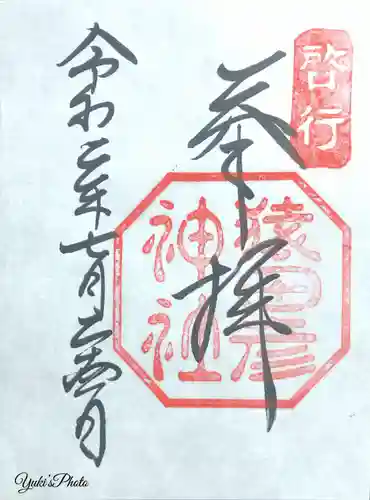 啓行
奉拝
猿田彦
神社
令和二年七月二十四日
Yuki'sPhoto